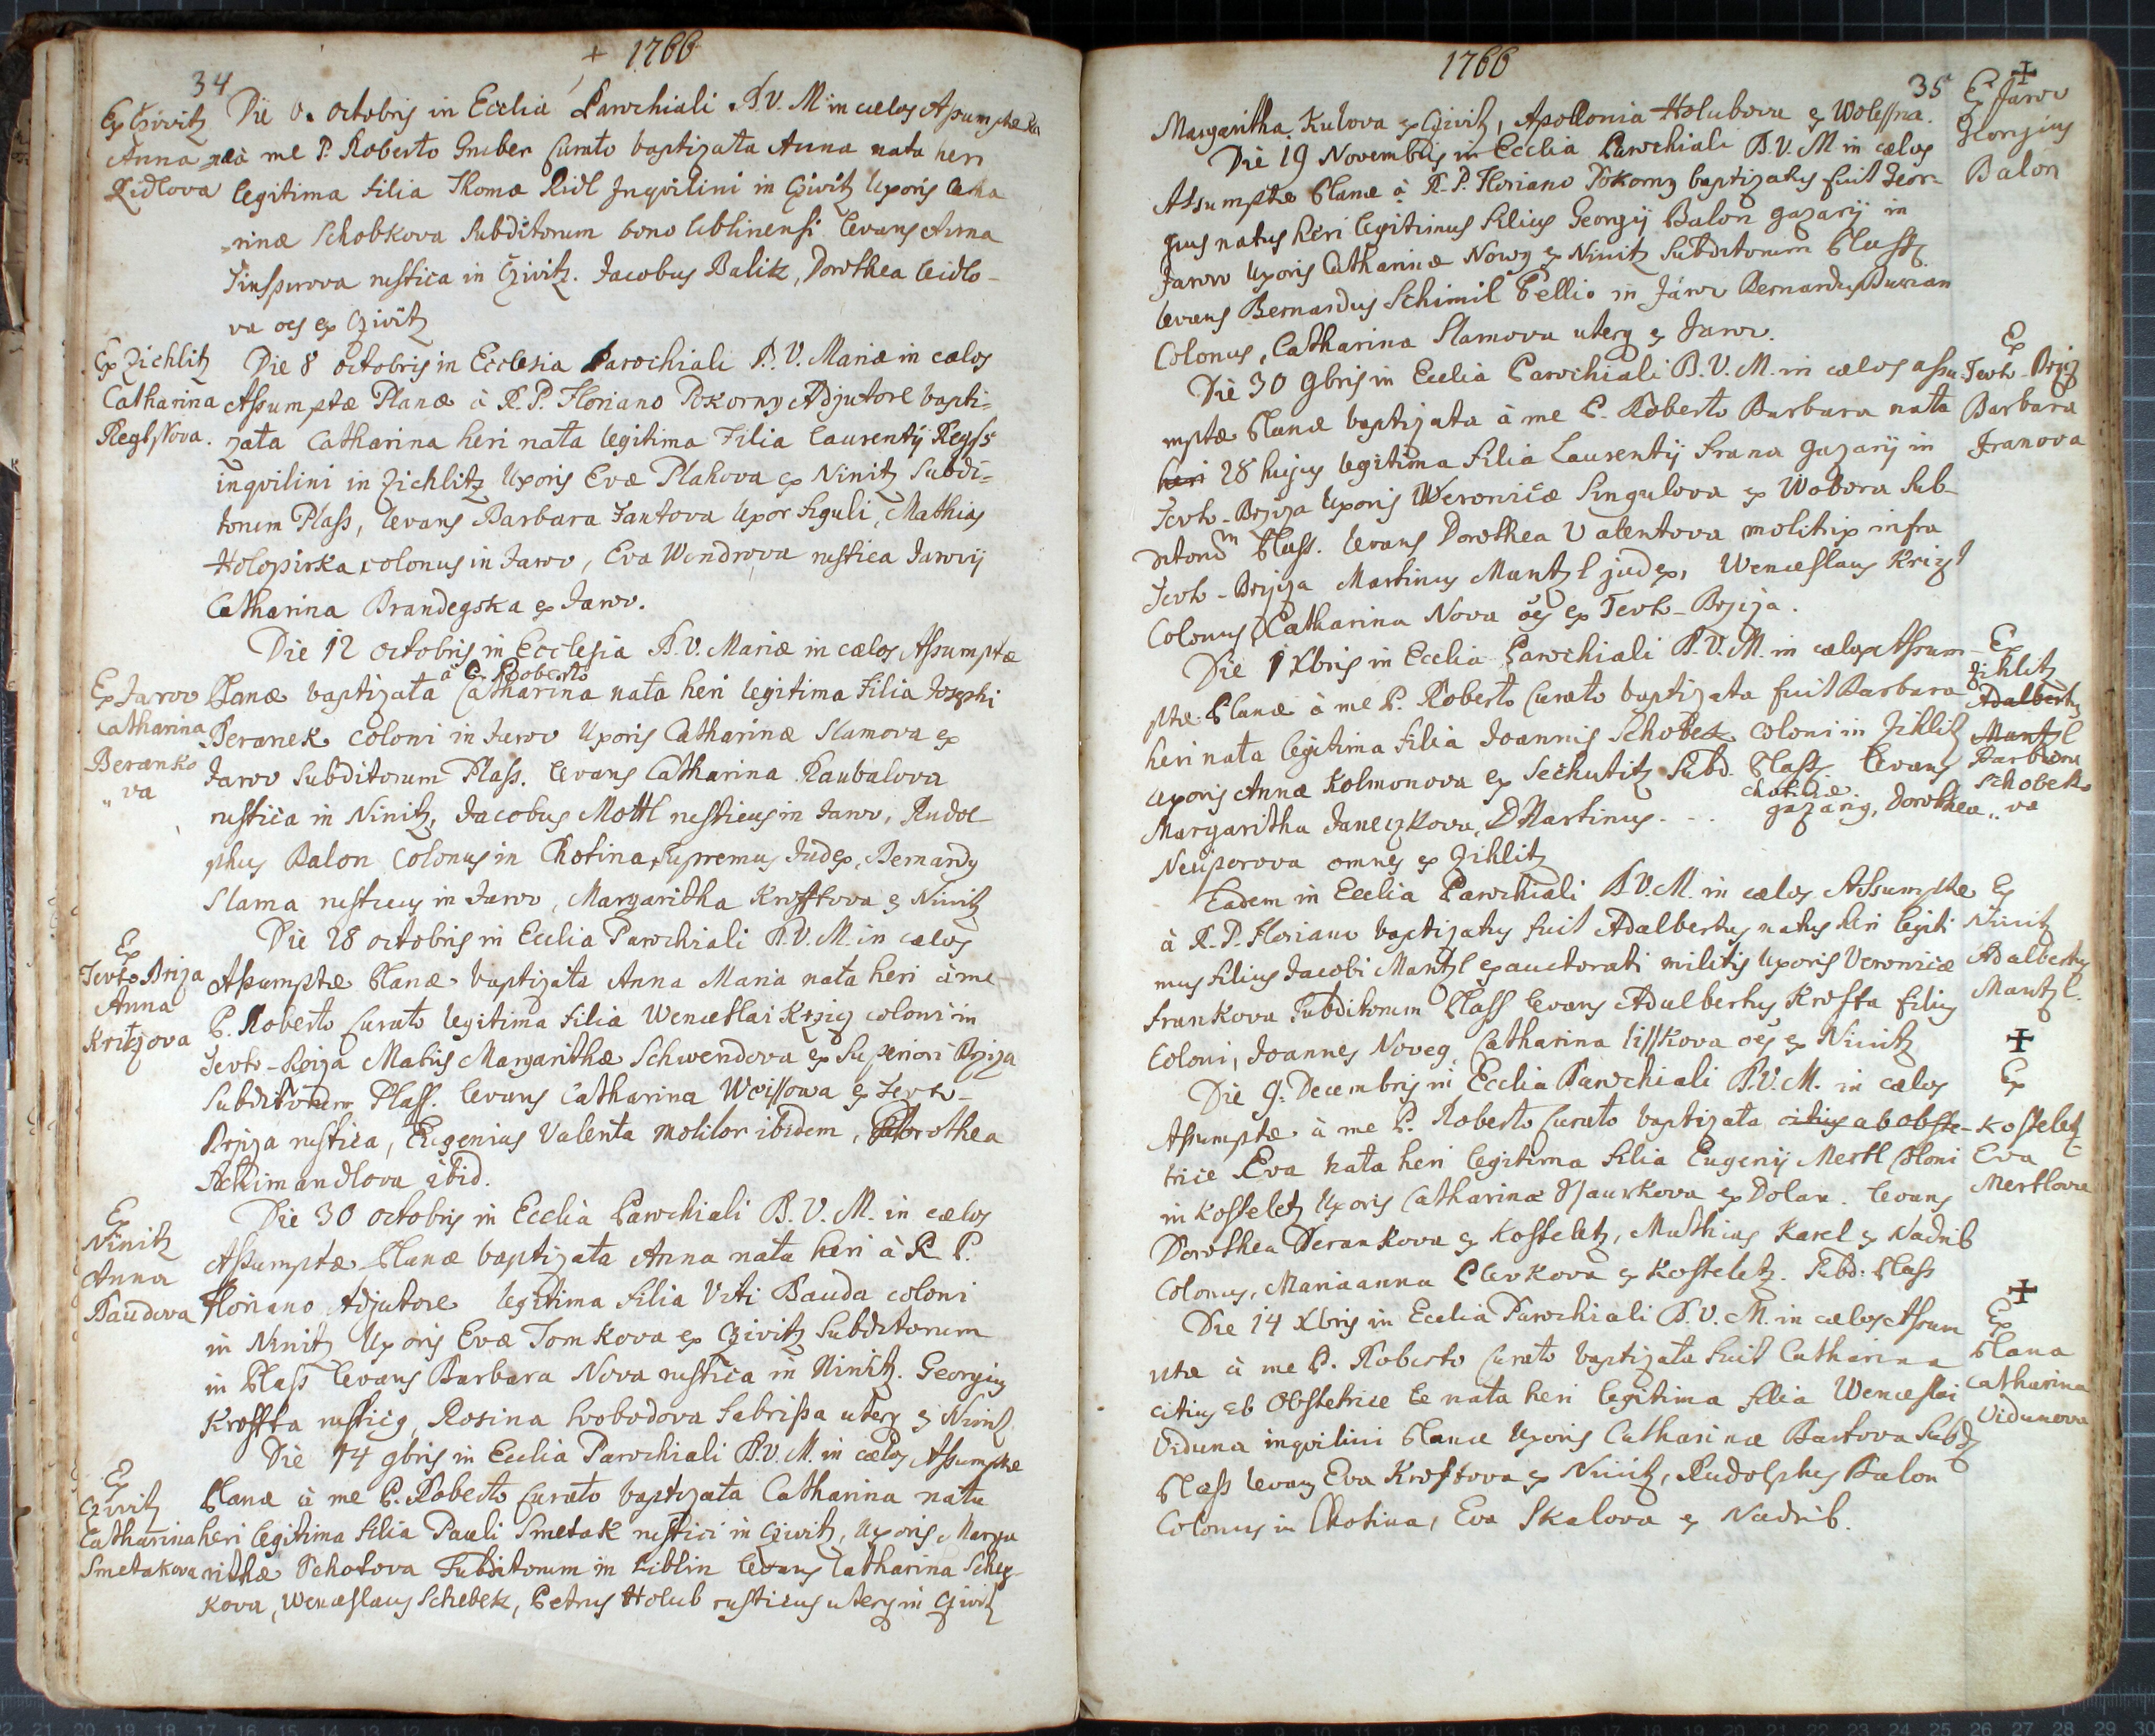 + 1766
34
Ex Cziwitz
Anna
Ridlova
Die 6. octobris in Ecclia Parochiali B.V.M in cælos Assumptæ
à me P. Roberto Gruber Curato baptizata Anna nata heri
legitima filia Thomæ Ridl Inqvilini in Cziwitz Uxoris Catha
rinæ Schobkova Subditorum bono Liblinensi levans Anna
rustica in Cziwitz. Jacobus Balik, Dorothea Reidlo-
va oes ex Cziwitz
Ex Zichlitz
Catharina
Die 8 octobris in Ecclesia Parochiali B. V. Mariæ in cælos
Assumptæ Planæ à R. P. Floriano Pokorny Adjutore bapti=
zata Catharina heri nata legitima Filia Laurentij
inqvilini in Zichlitz Uxoris Evæ Plahova ex Ninitz Subdi=
torum Plass, levans Barbara Jantova Uxor figuli, Mathias
Holopirka colonus in Jarov, Eva Wondrova rustica Jarovij
Catharina Brandegska ex Jarov.
Ex Jarov
Catharina
Beranko
"va
Die 12 octobris in Ecclesia B.V. Mariæ in cælos Assumptæ
à P. Roberto
Planæ baptizata Catharina nata heri legitima Filia Josephi
Beranek coloni in Jarov Uxoris Catharinæ Slamova ex
Jarov Subditorum Plass. levans Catharina Raubalova
rustica in Ninitz, Jacobus Mottl rusticus in Jarov, Rudol
phus Balon Colonus in Chotina, Supremus Judex, Bernardus
Slama rusticus in Jarov, Margaritha Krofftova ex Ninitz
Ex
Anna
Kritzova
Die 28 octobris in Ecclia Parochiali B.V.M. in cælos
Assumptæ Planæ baptizata Anna Maria nata heri à me
P. Roberto Curato legitima filia Wenceslai coloni in
Matris Margarithæ Schwendova ex Superiori Brziza
Subditorum Plass. levans Catharina Weissowa ex
Brziza rustica, Eugenius Valenta molitor ibidem, Dorothea
Schimandlova ibid.
Ex
Ninitz
Anna
Baudova
Die 30 octobris in Ecclia Parochiali B.V.M. in cælos
Assumptæ Planæ baptizata Anna nata heri à R P.
Floriano Adjutore legitima filia Viti Bauda coloni
in Ninitz Uxoris Evæ Tomkova ex Cziwitz Subditorum
in Plass levans Barbara Nova rustica in Ninitz. Georgius
Kroffta rusticus, Rosina Svobodova fabrissa uterq ex Ninitz
Ex
Cziwitz
Catharina
Smetakova
Die 14 9bris in Ecclia Parochiali B.V.M. in cælos Assumptæ
Planæ à me P. Roberto Curato baptizata Catharina nata
heri legitima filia Pauli Smetak rustici in Cziwitz, Uxoris Marga
rithæ Schotova Subditorum in Liblin levans Catharina
kova, Wenceslaus Schebek, Petrus Holub rusticus uterq in Cziwitz
1766
35
Margaritha Kulova ex Cziwitz, Apollonia Holubova ex Wolessna.
+
Ex Jarov
Georgius
Balon
Die 19 Novembris in Ecclia Parochiali B.V.M. in cælos
Assumptæ Planæ à R. P. Floriano Pokorny baptizatus fuit Geor=
gius natus heri legitimus filius Georgij Balon gazarij in
Jarov Uxoris Catharinæ Nowy ex Ninitz Subditorum Plass
levans Bernardus Schimil Pellio in Jarov Bernardus Burian
Colonus, Catharina Slamova uterq ex Jarov.
Ex
Barbara
Franova
Die 30 9bris in Ecclia Parochiali B.V.M. in cælos assu-
mptæ Planæ baptizata à me P. Roberto Barbara nata
heri 28 hujus legitima filia Laurentij Frana gazarij in
Uxoris Weronicæ Singulova ex Wobora Sub-
ditorum Plass. levans Dorothea Valentova molitrix infra
Martinus Mantzl judex, Wenceslaus
Colonus, Catharina Nova oes ex
Ex
Zihlitz
Adalbertus
Mantzl
Barbara
Schobek
"va
Die 1 Xbris in Ecclia Parochiali B.V.M. in cælos Assum-
ptæ Planæ à me P. Roberto Curato baptizata fuit Barbara
heri nata legitima filia Joannis Schobek coloni in Zihlitz
Uxoris Annæ Kolmonova ex Sechutitz Subd. Plass levans
Margaritha Janeczkova, Martinus - - gazarius, Dorothea
Neüperova omnes ex Zihlitz
Ex
Ninitz
Adalbertus
Mantzl.
Eadem in Ecclia Parochiali B.V.M. in cælos Assumptæ
à R. P. Floriano baptizatus fuit Adalbertus natus heri legiti
mus filius Jacobi Mantzl exauctorati militis Uxoris Veronicæ
Frankova Subditorum Plass levans Adalbertus Krofta filius
Coloni, Joannes Noveg, Catharina Lisskova oes ex Ninitz
+
Ex
Kosteletz
Eva
Mertlova
Die 9. Decembris in Ecclia Parochiali B.V.M. in cælos
Assumptæ à me P. Roberto Curato baptizata citius ab obste-
trice Eva nata heri legitima filia Eugenij Mertl Coloni
in Kosteletz Uxoris Catharinæ ex Dolan. levans
Dorothea Berankova ex Kosteletz, Mathias Karel ex Nadrib
Colonus, Mariaanna Clevkova ex Kosteletz. Subd: Plass
+
Ex
Plana
Catharina
Vidunova
Die 14 Xbris in Ecclia Parochiali B.V.M. in cælos Assum
ptæ à me P. Roberto Curato baptizata fuit Catharina
citius ab Obstetrice et nata heri legitima filia Wenceslai
Viduna inqvilini Planæ Uxoris Catharinæ Bartova Subd
Plass levans Eva Kroftova ex Ninitz, Rudolphus Balon
Colonus in Chotina, Eva Skalova ex Nadrib.